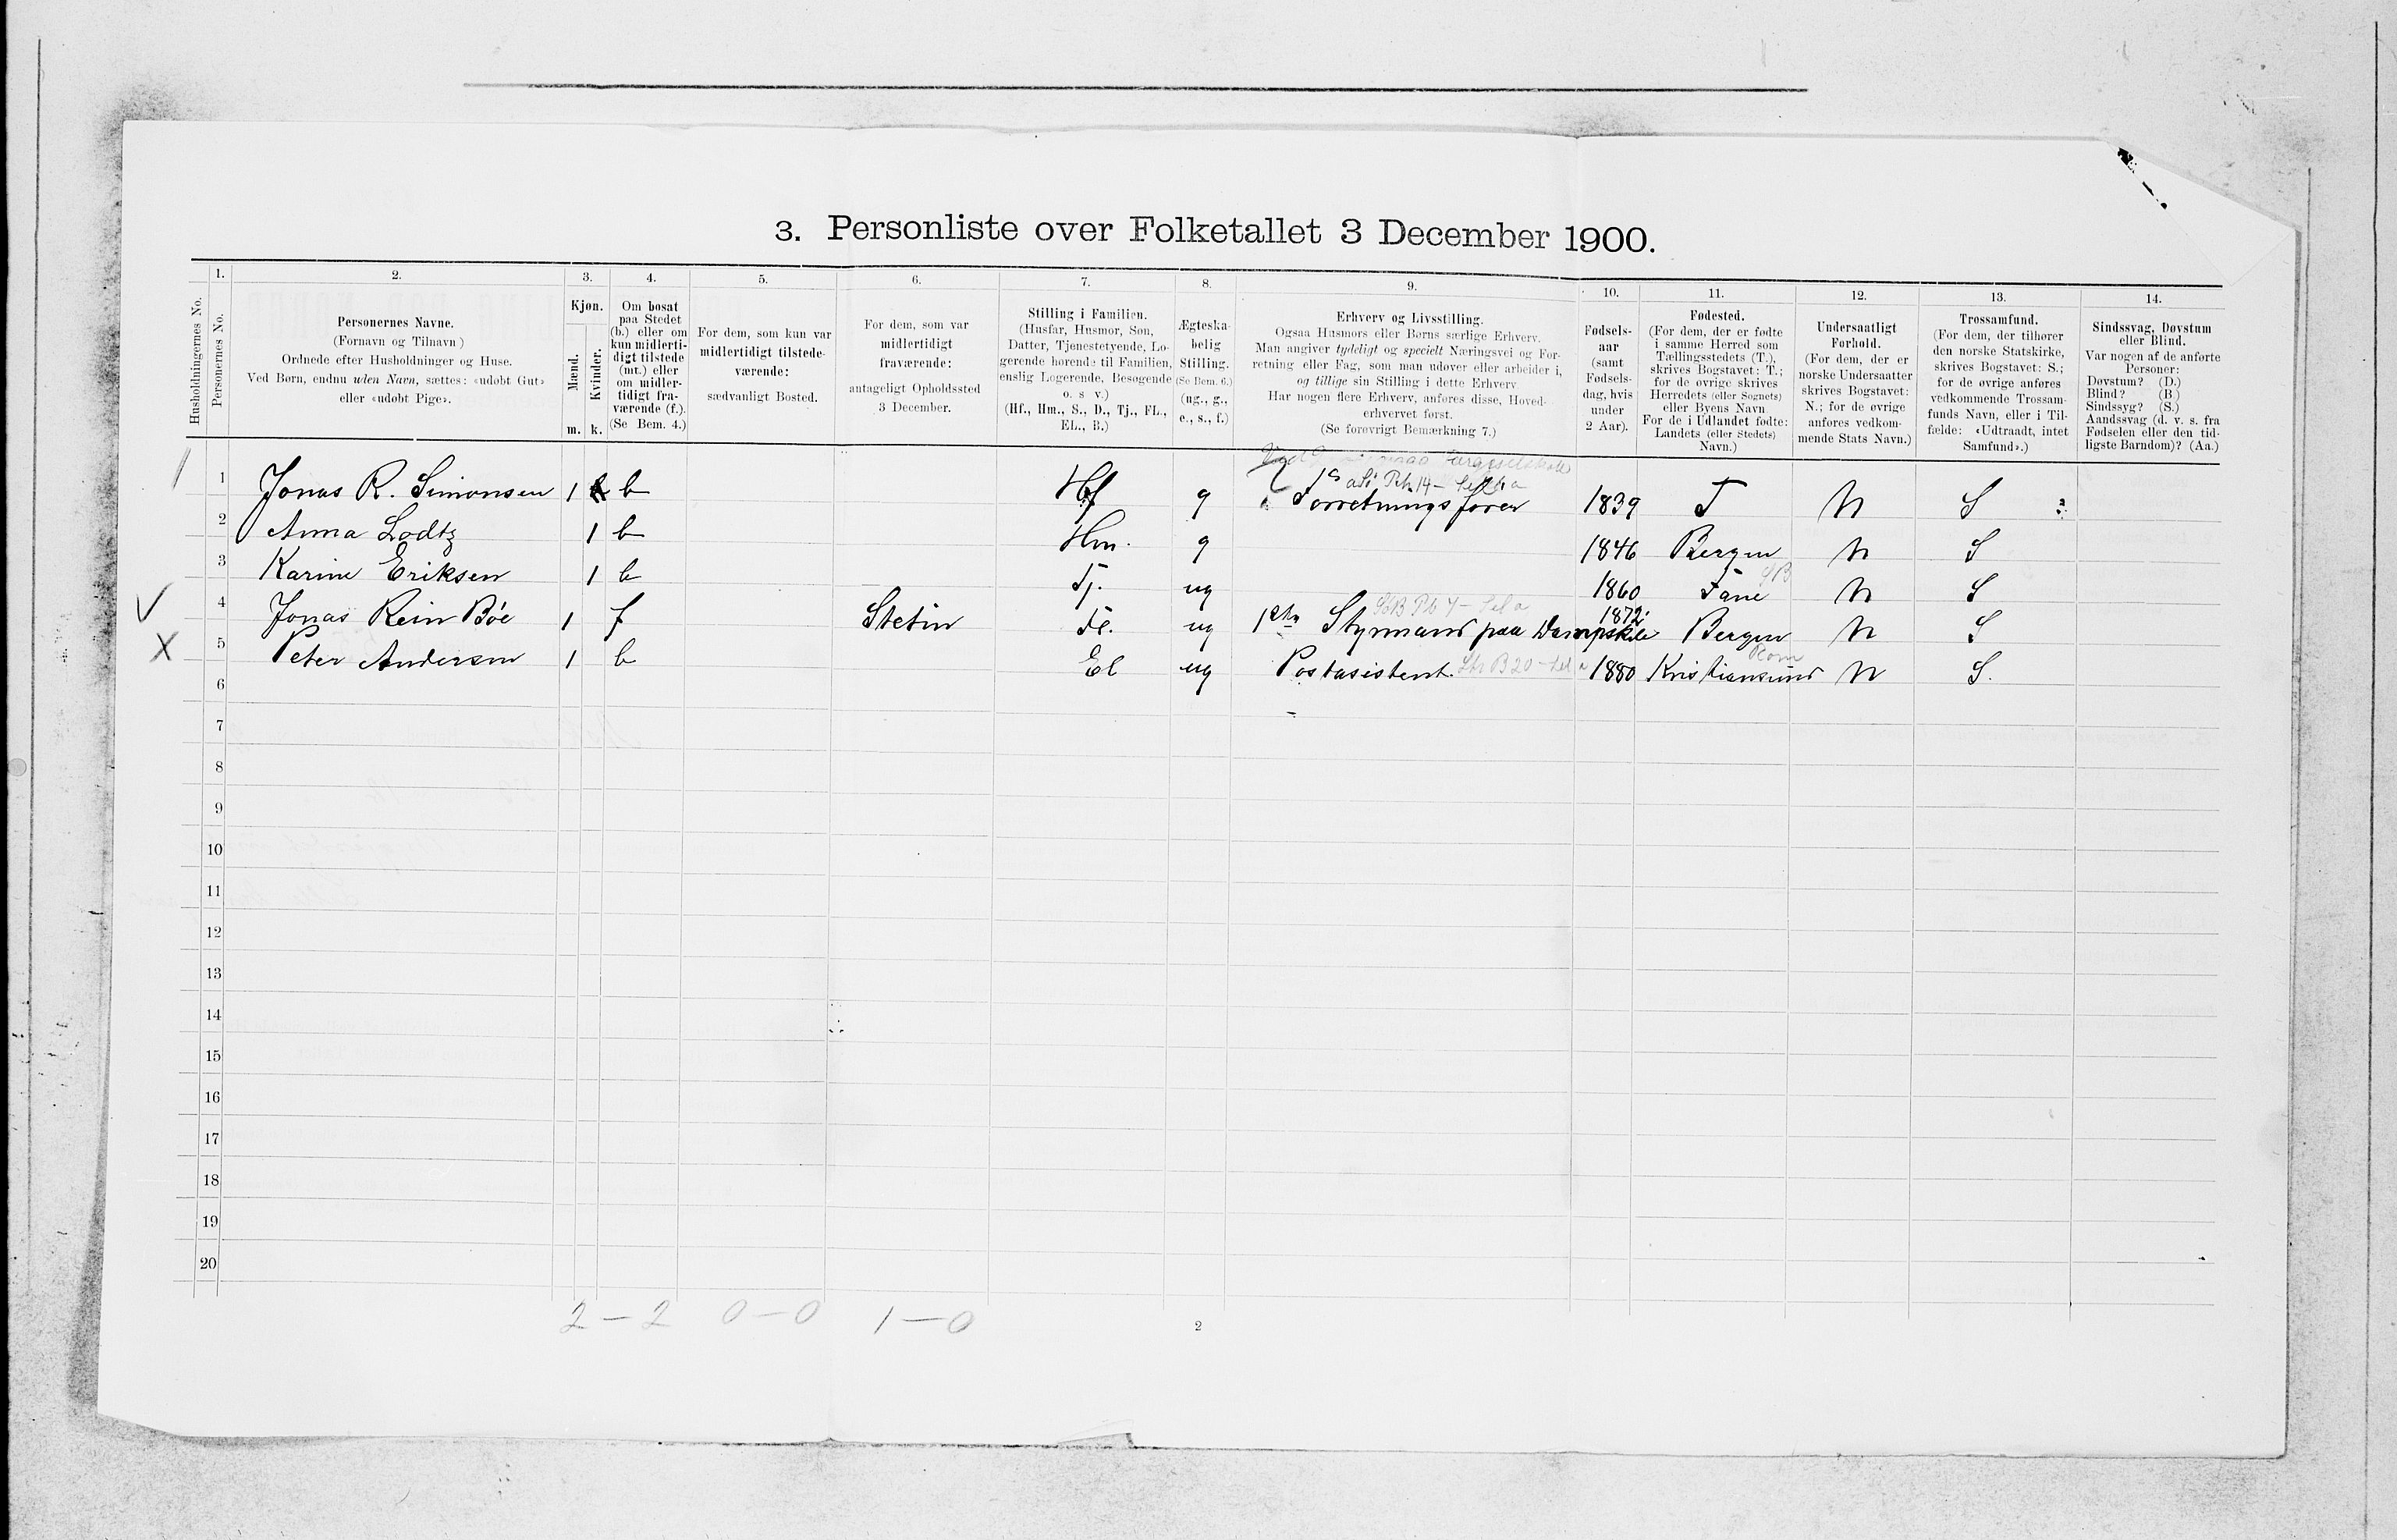 3. Personliste over Folketallet 3 December 1900.
Husholdningernes No.
1.
Personernes No.
2.
Personernes Navne.
(Fornavn og Tilnavn)
Ordnede efter Husholdninger og Huse.
Ved Børn, endnu uden Navn, sættes: «udøbt Gut»
eller «udøbt Pige».
3.
Kjøn.
Mænd.
Kvinder.
m. k.
4.
Om bosat
paa Stedet
(b.) eller om
kun midlerti-
digt tilstede
(mt.) eller
om midler-
tidigt fra-
værende (f.).
(Se Bem. 4.)
5.
For dem, som kun var
midlertidigt tilstede-
værende:
sædvanligt Bosted.
6.
For dem, som var
midlertidigt
fraværende:
antageligt Opholdssted
3 December.
7.
Stilling i Familien.
(Husfar, Husmor, Søn,
Datter, Tjenestetyende, Lo-
gerende hørende til Familien,
enslig Logerende, Besøgende
o. s v.)
(Hf., Hm., S., D., Tj., FL.,
EL., B.)
8.
Ægteska-
belig
Stilling.
(Se Bem. 6.)
(ug., g.,
e., s., f.)
9.
Erhverv og Livsstilling.
Ogsaa Husmors eller Børns særlige Erhverv.
Man angiver tydeligt og specielt Næringsvei og For-
retning eller Fag, som man udøver eller arbeider i,
og tillige sin Stilling i dette Erhverv
Har nogen flere Erhverv, anføres disse, Hoved-
erhvervet først.
(Se forøvrigt Bemærkning 7.)
10.
Fødsels-
aar
(samt
Fødsels-
dag, hvis
under
2 Aar).
11.
Fødested.
(For dem, der er fødte
i samme Herred som
Tællingsstedets (T.),
skrives Bogstavet: T.;
for de øvrige skrives
Herredets (eller Sognets)
eller Byens Navn
For de i Udlandet fødte:
Landets (eller Stedets)
Navn.)
12.
Undersaatligt
Forhold.
(For dem, der er
norske Undersaatter
skrives Bogstavet:
N.; for de øvrige
anføres vedkom-
mende Stats Navn.)
13.
Trossamfund.
(For dem, der tilhører
den norske Statskirke,
skrives Bogstavet: S.;
for de øvrige anføres
vedkommende Trossam-
funds Navn, eller i Til-
fælde: «Udtraadt, intet
Samfund».)
14.
Sindssvag, Døvstum
eller Blind.
Var nogen af de anførte
Personer:
Døvstum? (D.)
Blind? (B.)
Sindssyg? (S.)
Aandssvag (d. v. s. fra
Fødselen eller den tid-
ligste Barndom)? (Aa.)
1 Jonas R. Simonsen 1 b Hf g Forretningsfører 1839 T N S
2 Anna Lodtz 1 b Hm. g 1846 Bergen N S
3 Karine Eriksen 1 b Tj. ug 1860 Fane N S
4 Jonas Rein Bøe 1 f Stetin Fl. ug 1ste Styrmand paa Dampskib 1872 Bergen N S
5 Peter Andersen 1 b El ug Postasistent. 1880 Kristiansund N S.
Rom
6
7
8
9
10
11
12
13
14
15
16
17
18
19
20
2 — 2 0 — 0 1 — 0
2